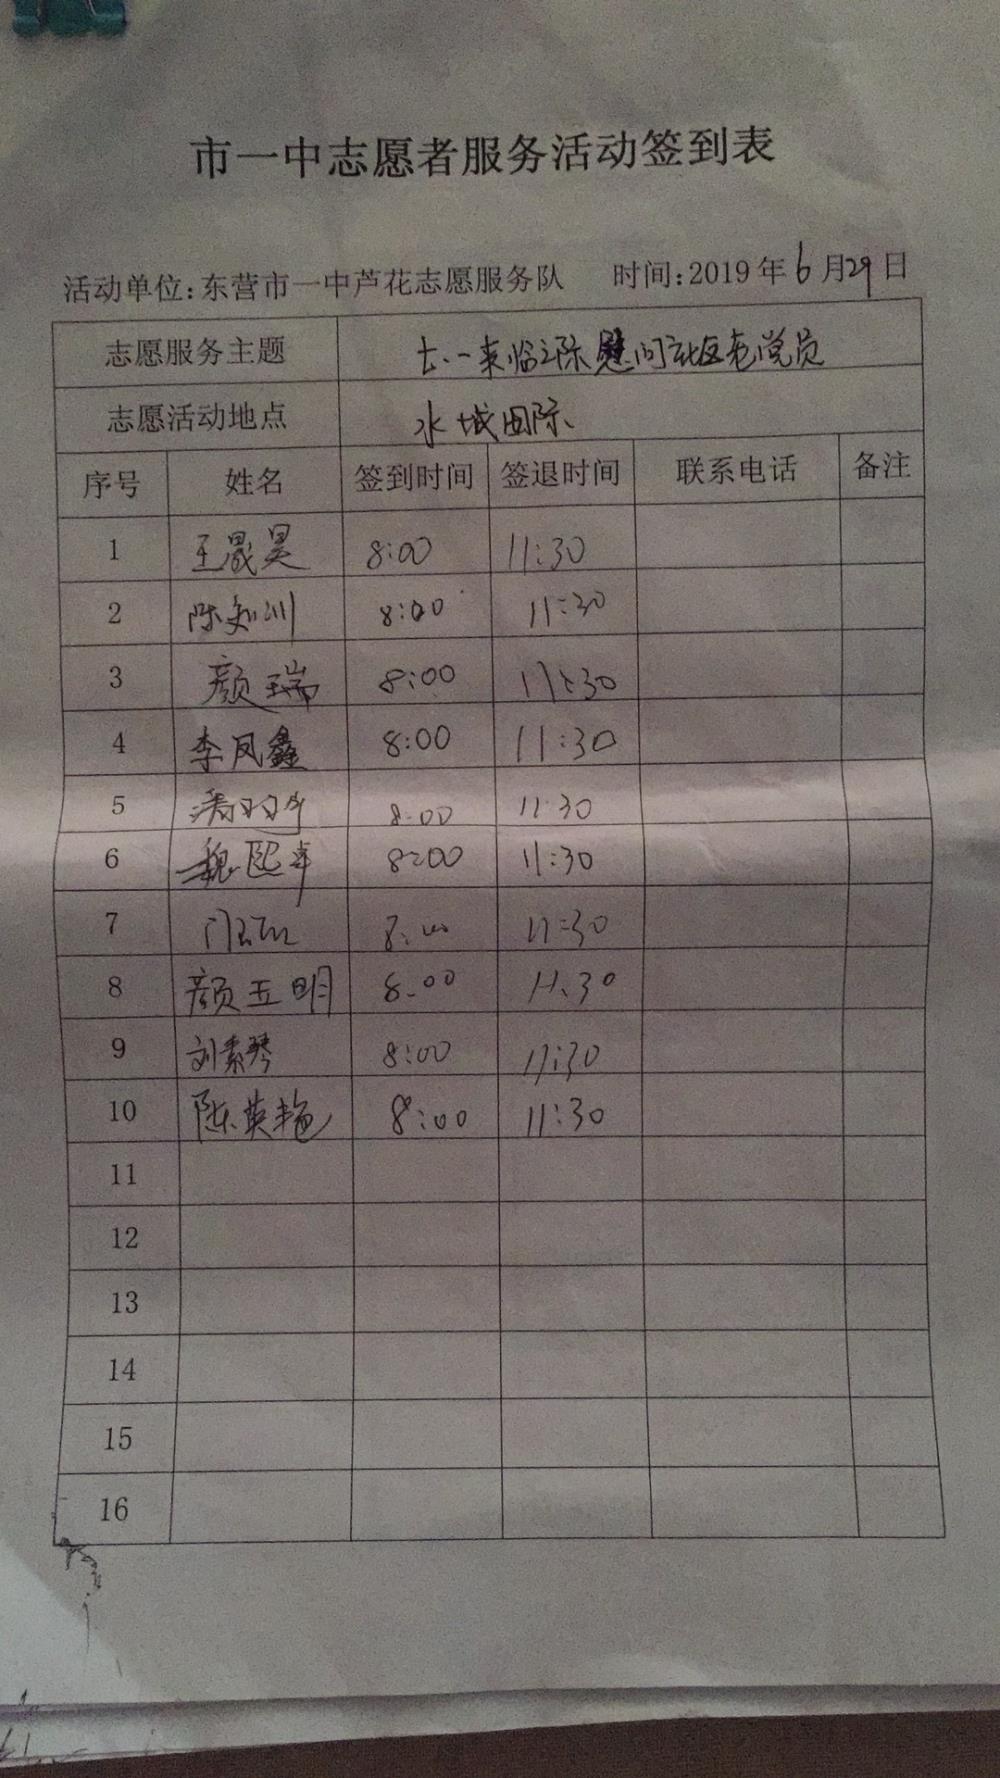 市一中志愿者服务活动签到表
活动单位:东营市一中芦花志愿服务队 时间:2019年6月29日
志愿服务主题 七一来临之际慰问社区老党员
志愿活动地点 水城国际
序号 姓名 签到时间 签退时间 联系电话 备注
1 王晟昊 8:00 11:30
2 陈 8:00 11:30
3 颜瑞 8:00 11:30
4 李凤鑫 8:00 11:30
5 8:00 11:30
6 魏熙 8:00 11:30
7 8:00 11:30
8 颜玉明 8:00 11:30
9 刘素琴 8:00 11:30
10 陈英艳 8:00 11:30
11
12
13
14
15
16